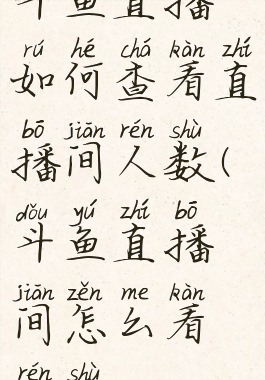 斗鱼直播
rú hé chá kàn zhí
如何查看直
bō jiān rén shù
播间人数(
dǒu yú zhí bō
斗鱼直播
jiān zěn me kàn
间怎么看
rén shù